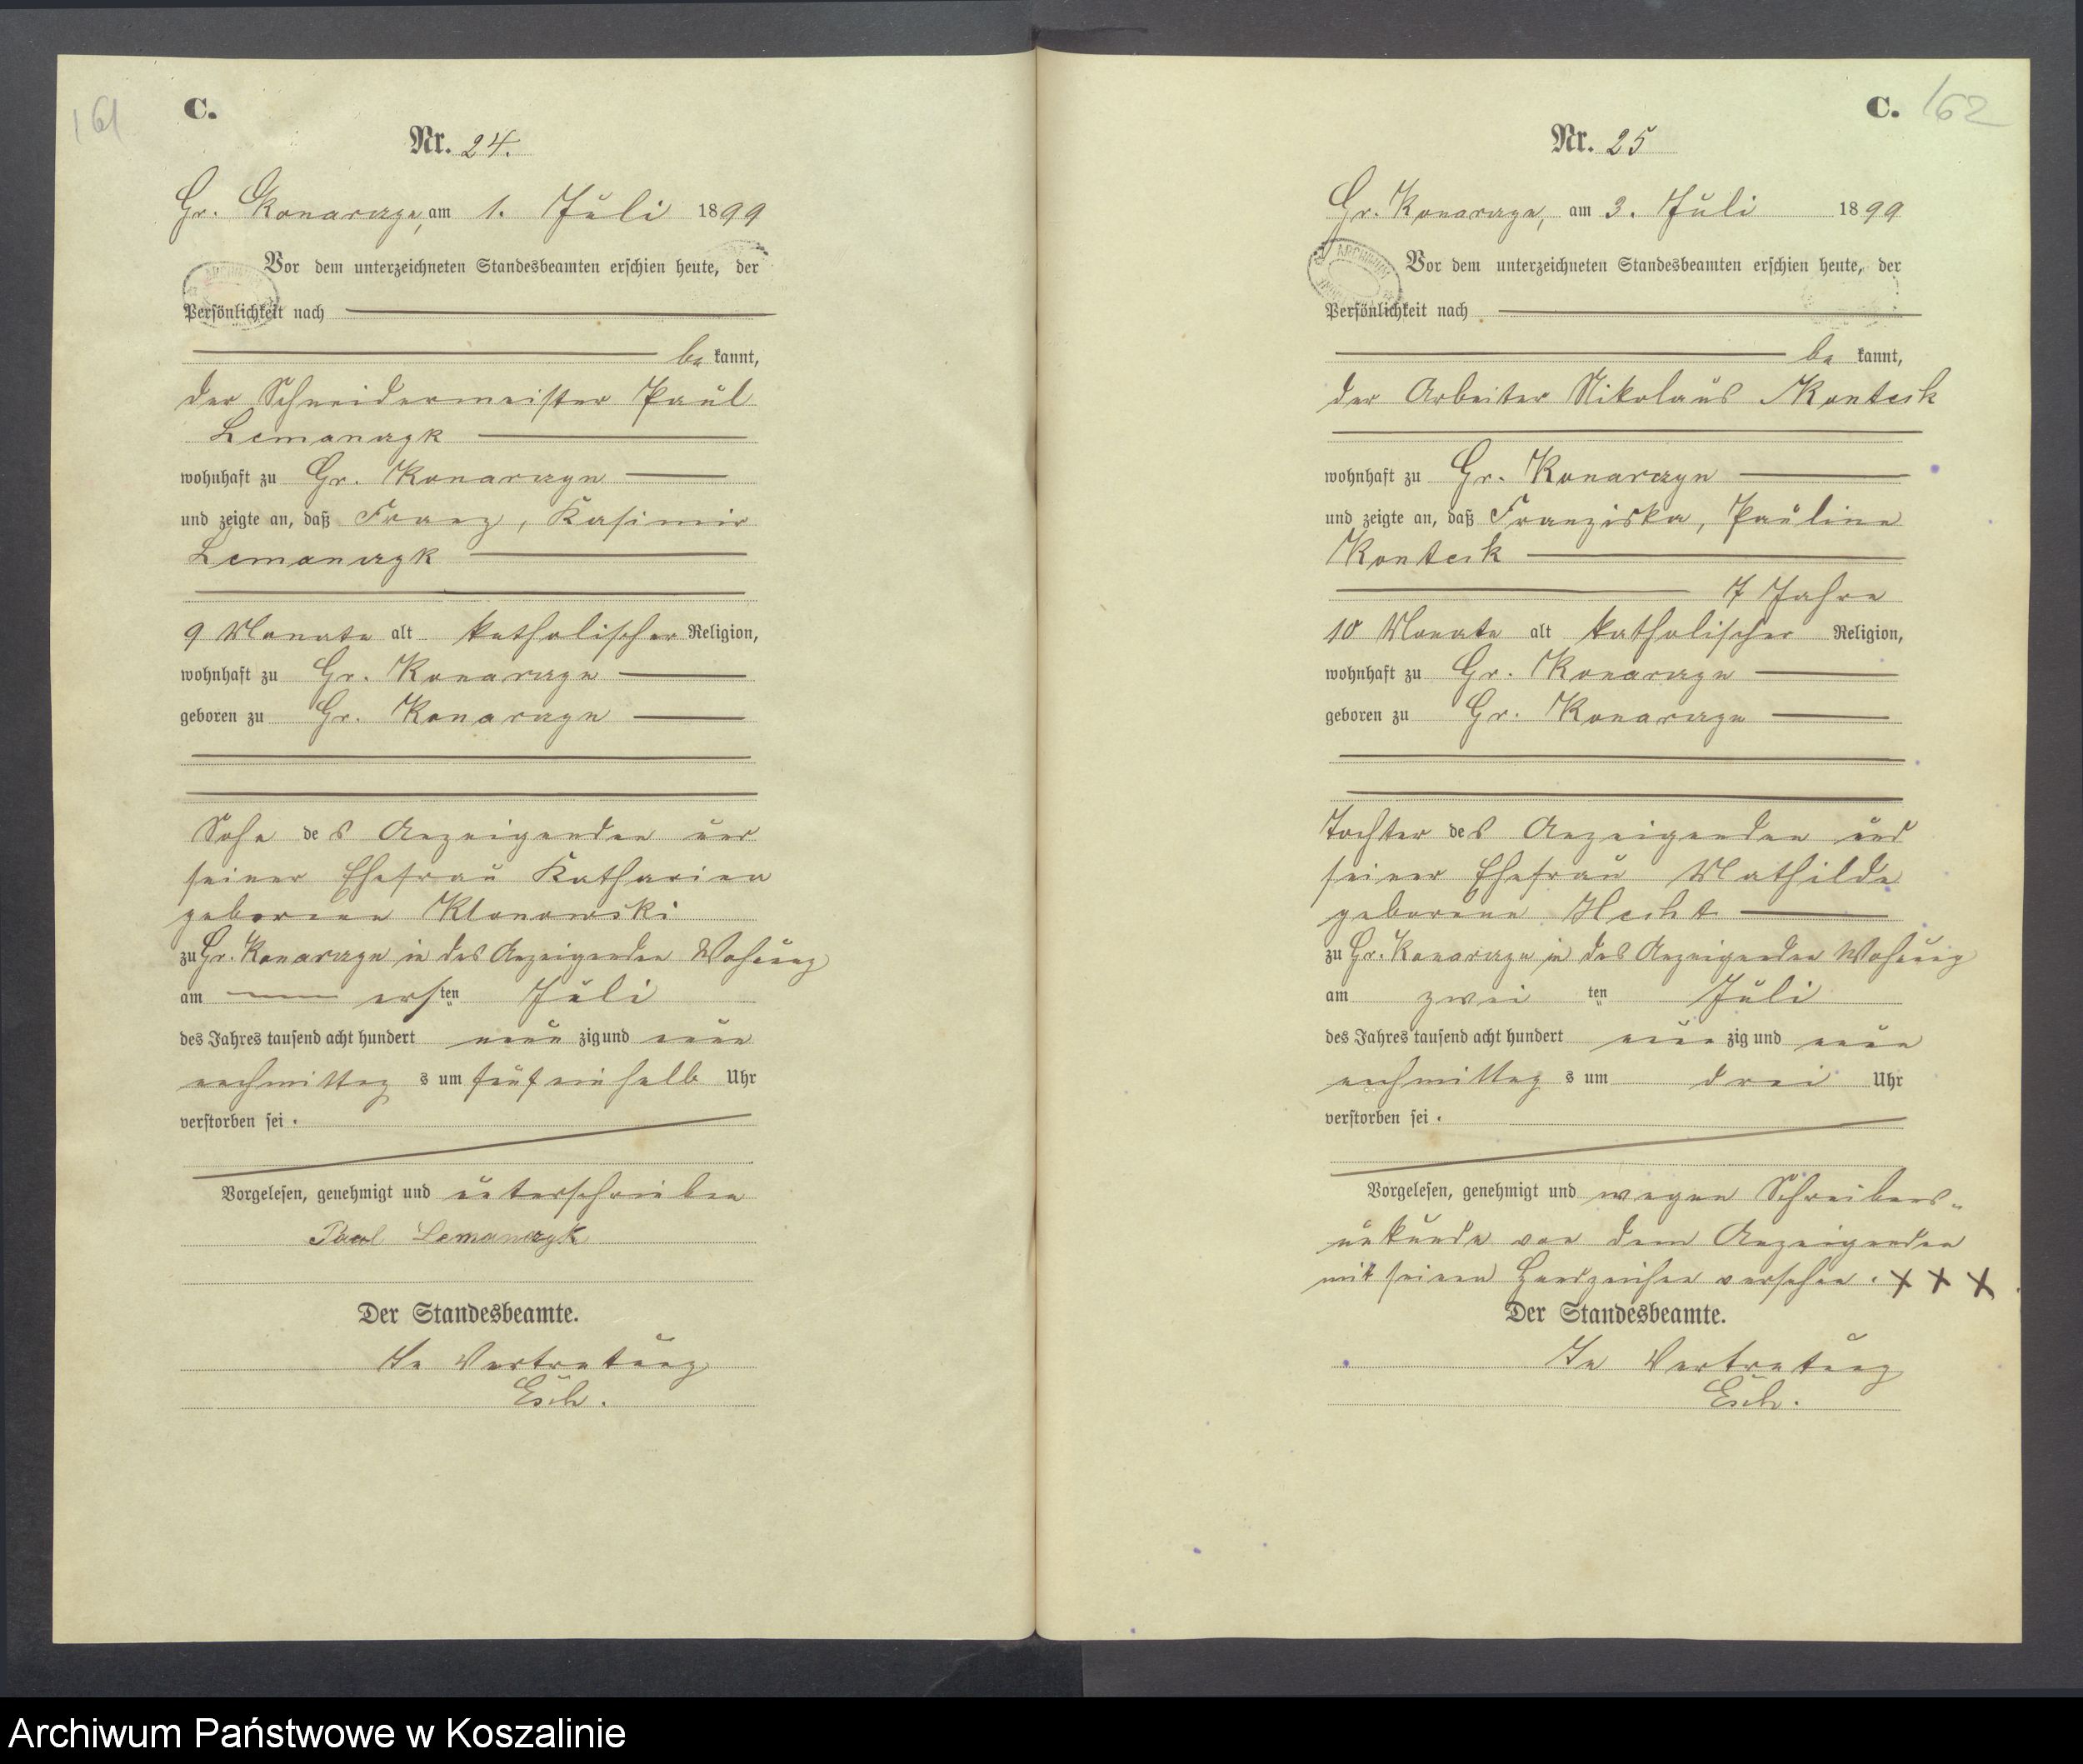 161
C.
Nr. 24.
Gr. Konarczyn, am 1. Juli 1899
Vor dem unterzeichneten Standesbeamten erschien heute, der
Persönlichkeit nach
be kannt,
der Schneidermeister Paul
Lemanczyk
wohnhaft zu Gr. Konarczyn
und zeigte an, daß Franz, Kasimir
Lemanczyk
9 Monate alt katholischer Religion,
wohnhaft zu Gr. Konarczyn
geboren zu Gr. Konarczyn
Sohn des Anzeigenden und
seiner Ehefrau Katharina
geborene Klonowski
zu Gr. Konarczyn in des Anzeigenden Wohnung
am ersten Juli
des Jahres tausend acht hundert neun zig und neun
nachmittag s um fünf ein halb Uhr
verstorben sei.
Vorgelesen, genehmigt und unterschrieben
Paul Lemanczyk
Der Standesbeamte.
In Vertretung
Esch.
C. 162
Nr. 25
Gr. Konarczyn, am 3. Juli 1899
ARCHIWUM
Vor dem unterzeichneten Standesbeamten erschien heute, der
Persönlichkeit nach
be kannt,
der Arbeiter Nikolaus Konteck
wohnhaft zu Gr. Konarczyn
und zeigte an, daß Franziska, Pauline
Konteck
7 Jahre
10 Monate alt katholischer Religion,
wohnhaft zu Gr. Konarczyn
geboren zu Gr. Konarczyn
Tochter des Anzeigenden und
seiner Ehefrau Mathilde
geborene Hecht
zu Gr. Konarczyn in des Anzeigenden Wohnung
am zwei ten Juli
des Jahres tausend acht hundert neun zig und neun
nachmittag s um drei Uhr
verstorben sei.
Vorgelesen, genehmigt und wegen Schreibens-
unkunde von dem Anzeigenden
mit seinen Handzeichen versehen. X X X
Der Standesbeamte.
In Vertretung
Esch.
Archiwum Państwowe w Koszalinie